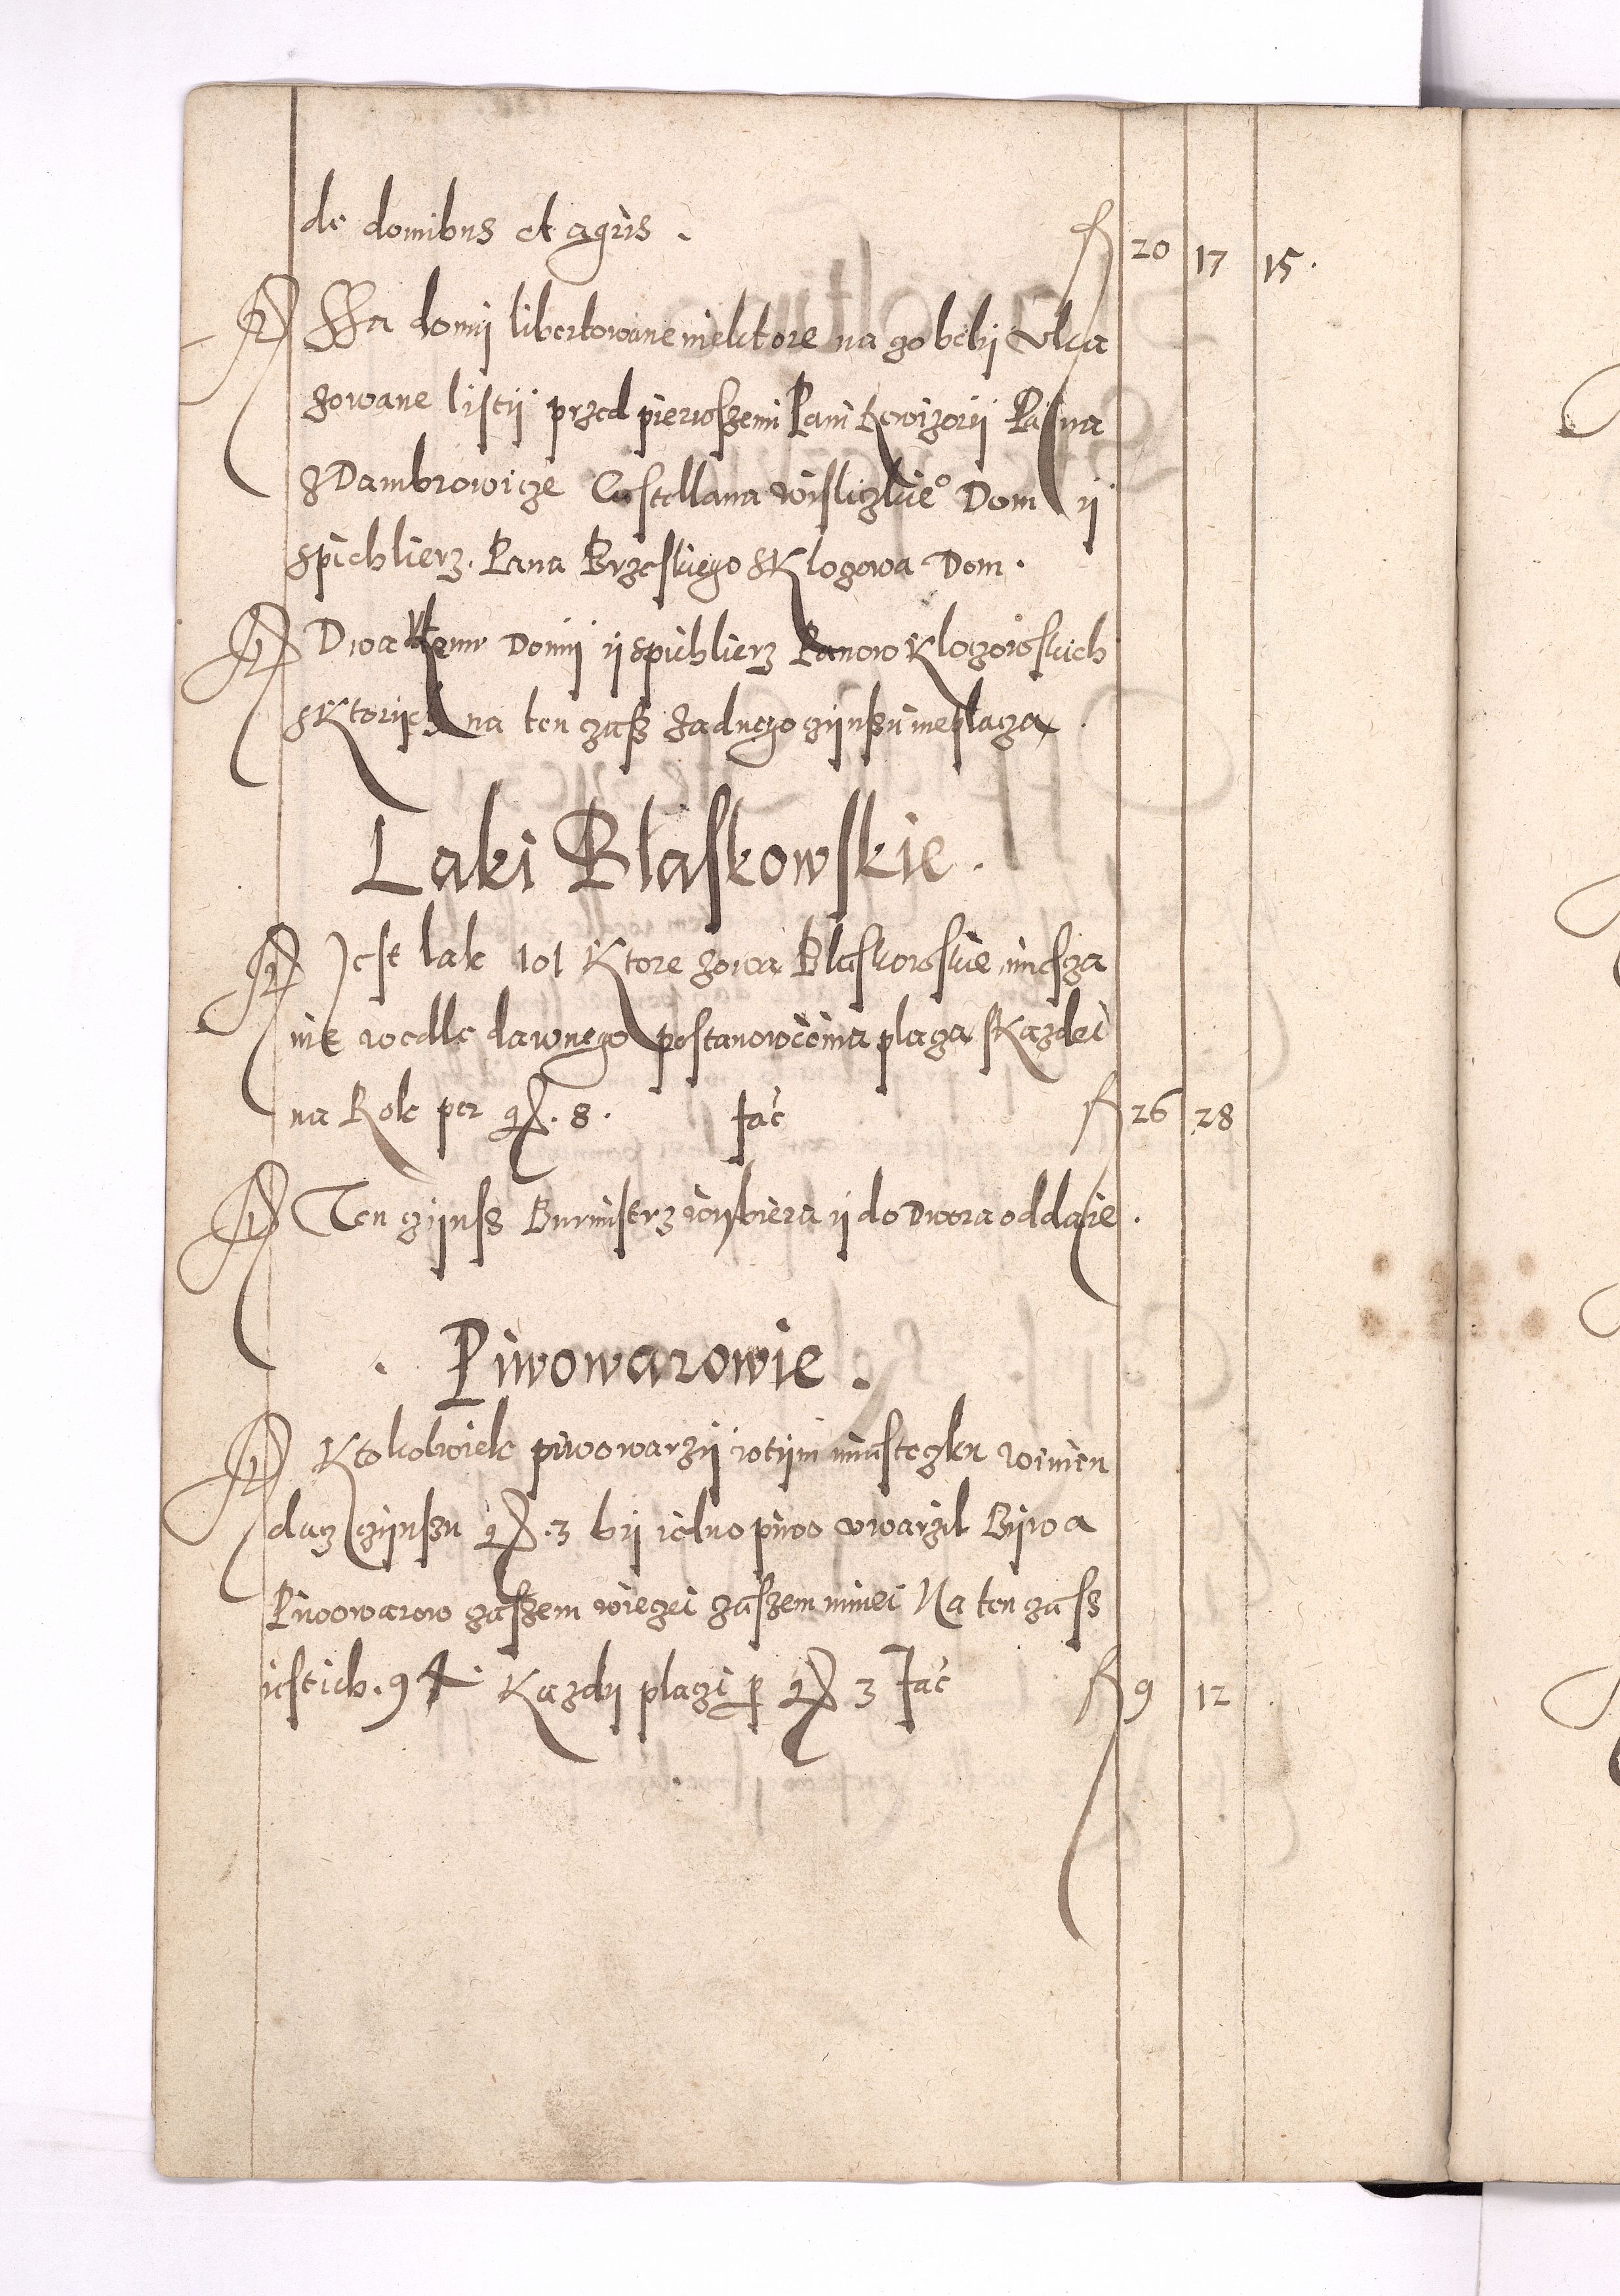 de domibus et agris. fl 20 17 15.
Ssa domy libertowane niektore na go ukа
zowane listy przed pierwszemi Pani Rewizory Pana
z Dambrowicze Castellana wislickie° Dom y
spichlierz. Pana Brzeskiego s Klogowa Dom.
Dwa domy y spichlierz Panow Klogowskich
s Ktorych na ten czass zadnego czynszu nieplacza
Laki Blaskowskie.
Jest lak 101 Ktore zowa Blaskowskie miescza
nie wedle dawnego postanowienia placza s kazdei
na Rok per gr. 8. fac fl 26 28
Ten czynss Burmistrz wybiera y do Dwora oddaie.
Piwowarowie.
Ktokolwiek piwowarzy w tym miasteczku winien
dacz czynszu gr. 3 by iedno piwo uwarzil Bywa
Piwowarow czaszem wieczei czaszem mniei Na ten czass
iest ich. 94 Kazdy placzi per gr 3 fac fl 9 12